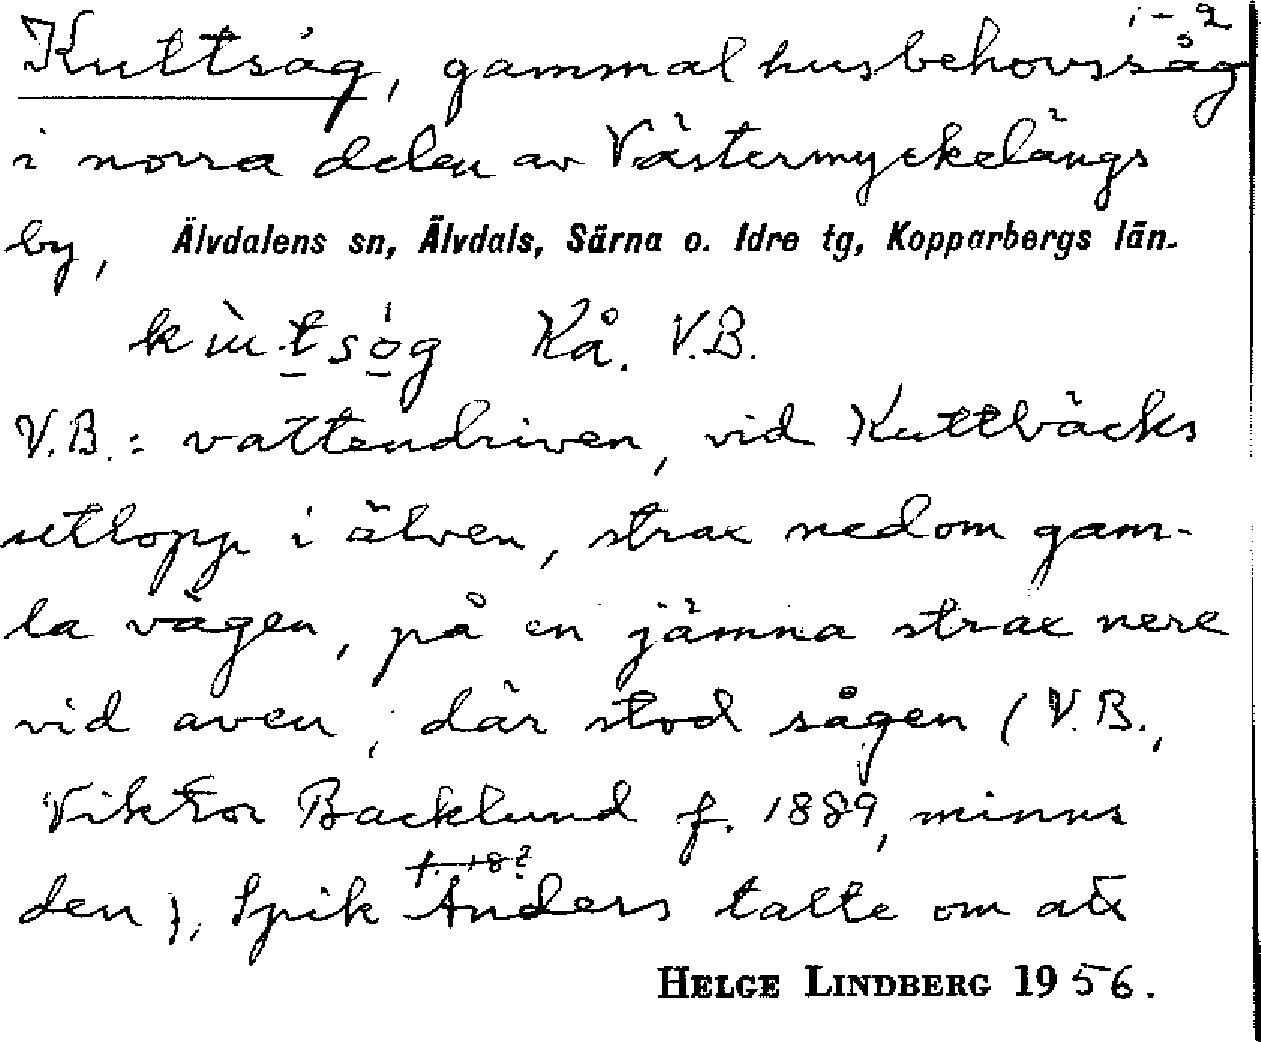 1-2
Kuttsåg, gammal husbehovssåg
i norra delen av Västermyckelängs
by, Älvdalens sn, Älvdals, Särna o. Idre tg, Kopparbergs län.
kùtsóg Kå. V.B.
V.B.: vattendriven, vid Kuttbäcks
utlopp i älven, strax nedom gam-
la vägen, på en jämna strax nere
vid aven, där stod sågen (V.B.,
Viktor Backlund f. 1889, minns
den), Spik Anders talte om att
HELGE LINDBERG 1956.